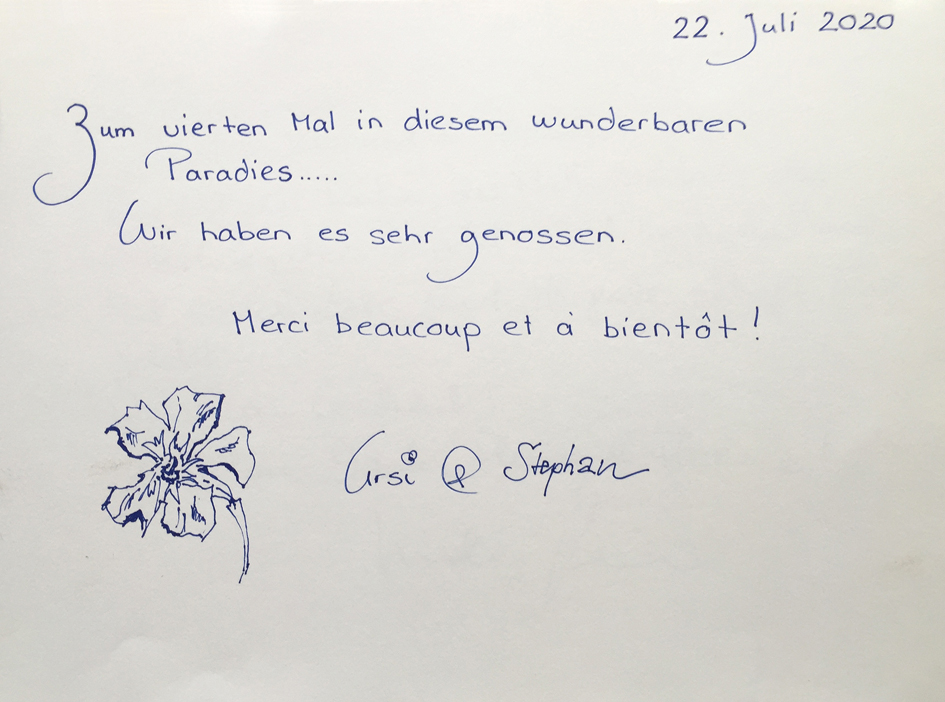 22. Juli 2020
Zum vierten Mal in diesem wunderbaren
Paradies.....
Wir haben es sehr genossen.
Merci beaucoup et à bientôt!
Ursi & Stephan